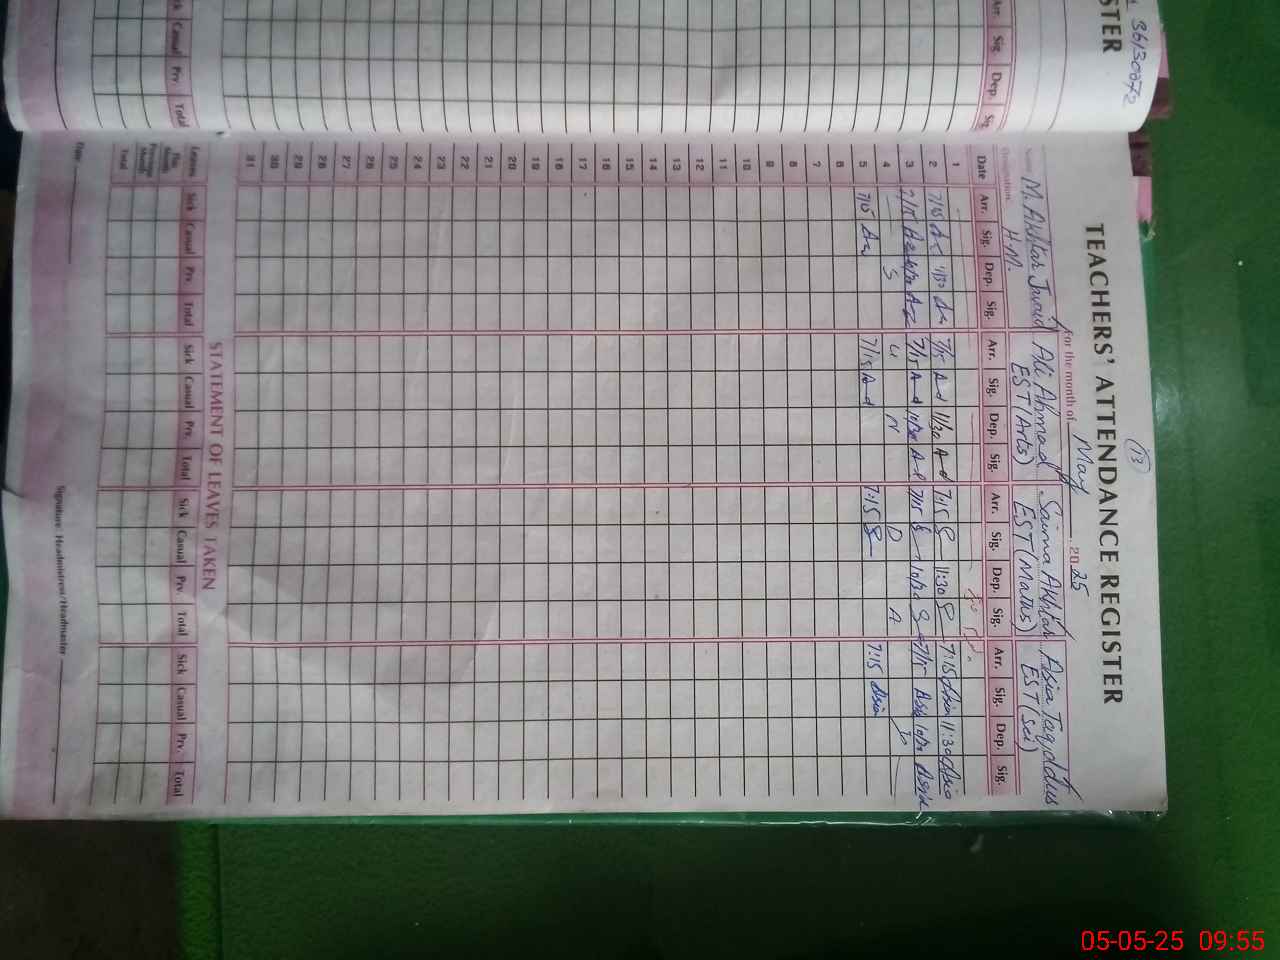 36130272
STER
Arr. Sig. Dep. Sig.
Sick Casual Prv. Total
13
TEACHERS' ATTENDANCE REGISTER
For the month of May 2025
Name M. Akhtar Javaid Ali Ahmad Saima Akhtar Asia Taqaddus
Designation H.M. EST (Arts) EST (Maths) EST (Sci)
Date Arr. Sig. Dep. Sig. Arr. Sig. Dep. Sig. Arr. Sig. Dep. Sig. Arr. Sig. Dep. Sig.
1
2 7/15 11/30 7/15 A-d 11/30 A-d 7:15 11:30 7:15 Asia 11:30 Asia
3 7/15 7/15 A-d 10/30 A-d 7/15 7/15
4 S U N D A Y
5 7/15 7/15 A-d 7:15 7:15 Asia
6
7
8
9
10
11
12
13
14
15
16
17
18
19
20
21
22
23
24
25
26
27
28
29
30
31
STATEMENT OF LEAVES TAKEN
Leaves Sick Casual Prv. Total Sick Casual Prv. Total Sick Casual Prv. Total Sick Casual Prv. Total
This Month
Previous Month
Total
Date Signature Headmistress/Headmaster
05-05-25 09:55